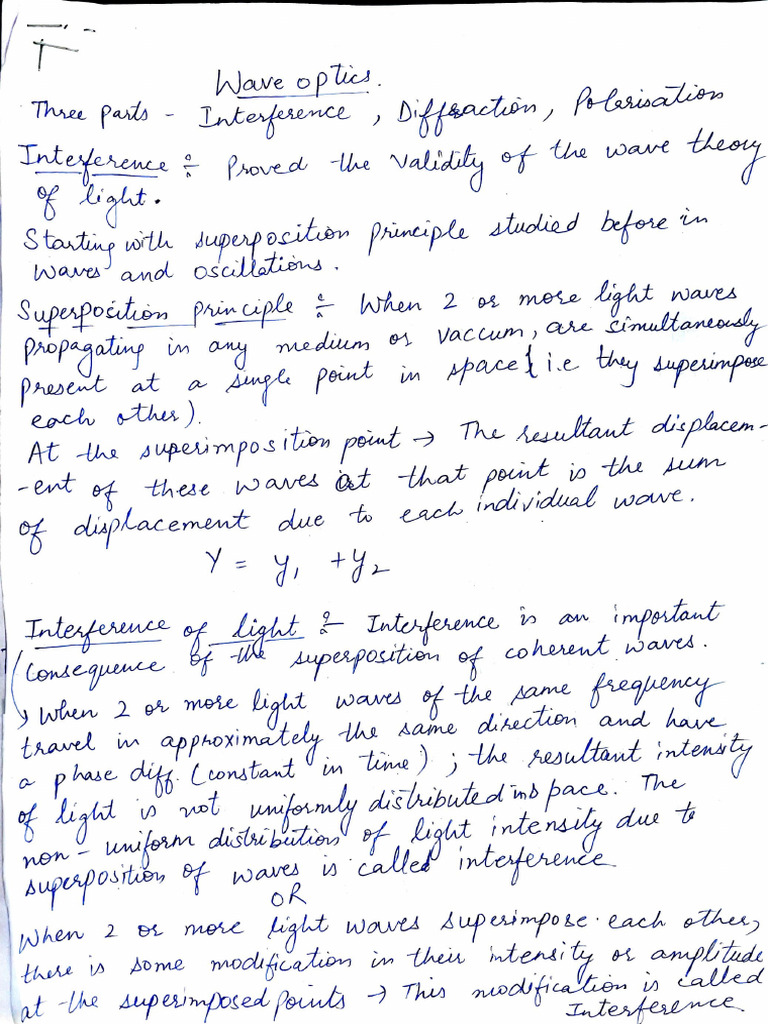 Wave optics.
Three parts - Interference , Diffraction , Polarisation
Interference :- Proved the validity of the wave theory
of light.
Starting with superposition principle studied before in
waves and oscillations.
Superposition principle :- When 2 or more light waves
propagating in any medium or vaccum, are simultaneously
present at a single point in space { i.e they superimpose
each other).
At the superimposition point → The resultant displacem-
-ent of these waves at that point is the sum
of displacement due to each individual wave.
Y = y₁ + y₂
Interference of light :- Interference is an important
consequence of the superposition of coherent waves.
→ When 2 or more light waves of the same frequency
travel in approximately the same direction and have
a phase diff. (constant in time) ; the resultant intensity
of light is not uniformly distributed in space. The
non-uniform distribution of light intensity due to
superposition of waves is called interference
OR
When 2 or more light waves superimpose each other,
there is some modification in their intensity or amplitude
at the superimposed points → This modification is called
Interference.